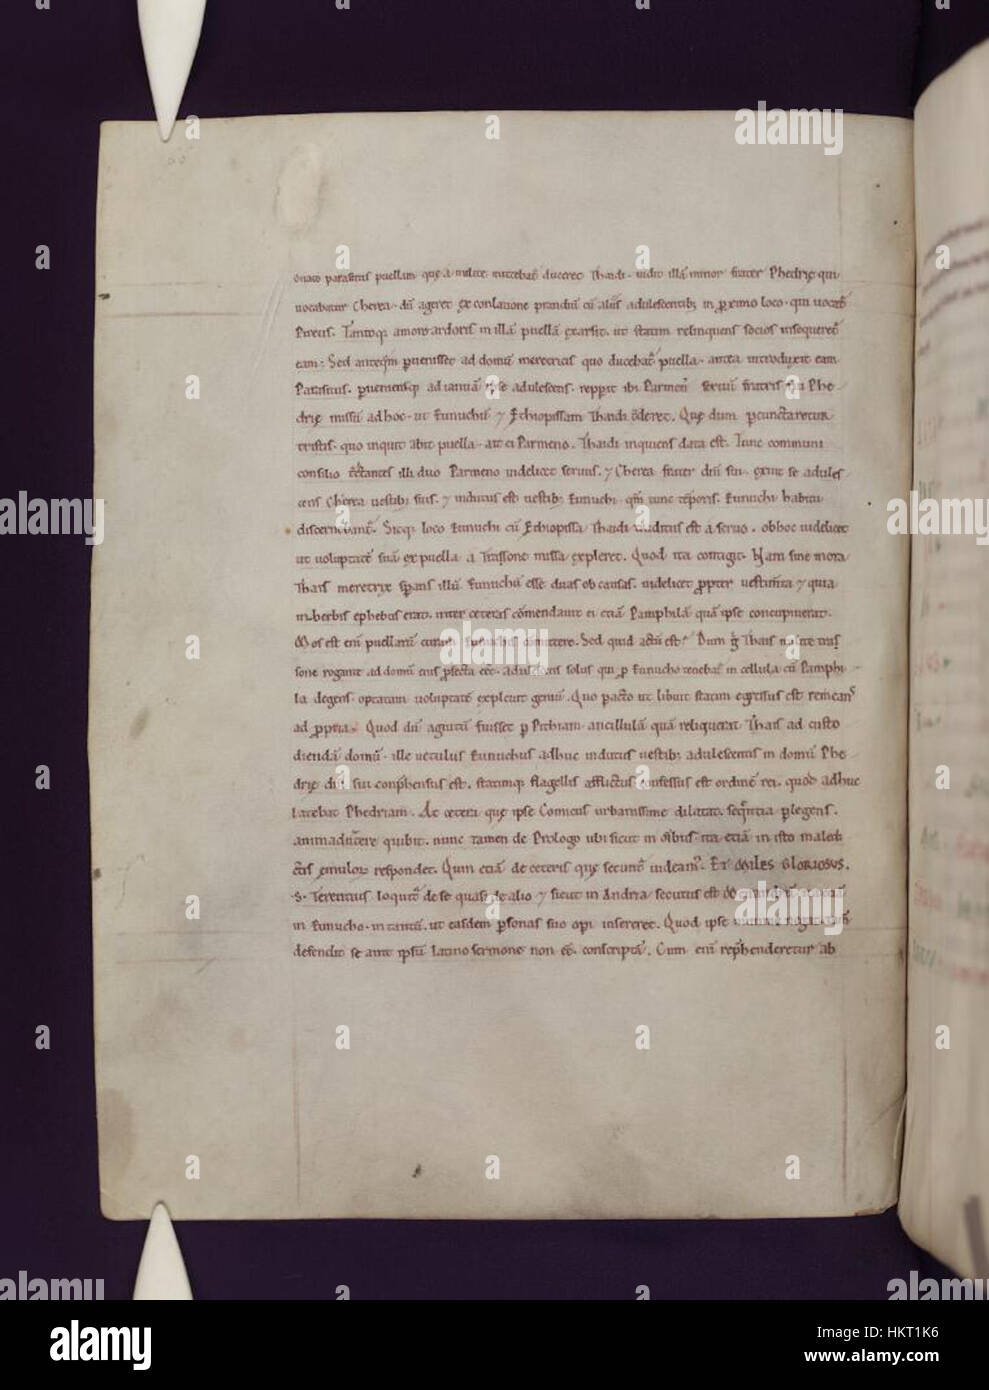 puellam que a milite mittebat' ducere Thaidi. uidit illā minor frater Phedrię qui
uocabatur Cherea. dū ageret ex conlatione prandiū cū aliis adulescentib; in pximo loco. qui uocat'
Pireus. Tantoq; amoris ardoris in illā puellā exarsit. ut statim relinquens socios insequeret'
eam; Sed anteq̄m puenisset ad domū meretricis quo ducebat' puella. antea introduxit eam
Parasitus. pueniensq; ad ianuā ipse adulescens. repperit ibi Parmen̄ seruū fratris sui Phe
drię missū ad hoc. ut Eunuchū ⁊ Ethiopissam Thaidi dederet. Quę dum pcunctaretur
tristis. quo inquit abiit puella. ait ei Parmeno. Thaidi inquiens data est. Tunc communi
consilio illi duo Parmeno uidelicet seruus. ⁊ Cherea frater dn̄i sui. exuit se adules
cens Cherea uestib; suis. ⁊ indutus est uestib; Eunuchi. qm̄ tunc tēporis. Eunuchi habitu
discernebant'. Sicq; loco Eunuchi cū Ethiopissa Thaidi est a seruo. ob hoc uidelicet
ut voluptatē suā ex puella a Trasone missa expleret. Quod ita contigit. Nam sine mora
Thais meretrix sperans illū Eunuchū esse duas ob causas. uidelicet ppter uestimta ⁊ quia
inberbis ephebus erat. inter ceteras cōmendauit ei etiā Pamphilā quā ipse concupiuerat.
Mos est eni puellarū curam Eunuchis committere. Sed quid actū est? Dum g̊ Thais
sone rogante ad domū eius pfecta eēt. adulescens solus qui p Eunucho tenebat' in cellula cū Pamphi
la degens. optatam uoluptatē expleuit geniū. Quo pacto ut libuit statim egressus est remeans
ad ppria. Quod dū agnitū fuisset p Pithiam. ancillulā quā reliquerat Thais ad custo
diendā domū. ille uetulus Eunuchus adhuc indutus uestib; adulescentis in domū Phe
drię dn̄i sui conphensus est. statimq; flagellis afflictus confessus est ordinē rei. quod adhuc
latebat Phedriam. Ac cetera quę ipse Comicus urbanissime dilatat. sequentia plegens.
animaduertere quibit. nunc tamen de Prologo ubi sicut in oībus. ita etiā in isto maledi
ctis ęmulorum respondet. Qum etiā de ceteris quę secunt' uideam'. ET MILES GLORIOSUS.
.S. Terentius loquit' de se quasi de alio ⁊ sicut in Andria secutus est
in Eunucho. in tantū. ut easdem psonas suo opi insereret. Quod ipse
defendit se ante ipsū latino sermone non eē conscriptā. Cum eni rephenderetur ab
alamy
Image ID: HKT1K6
www.alamy.com